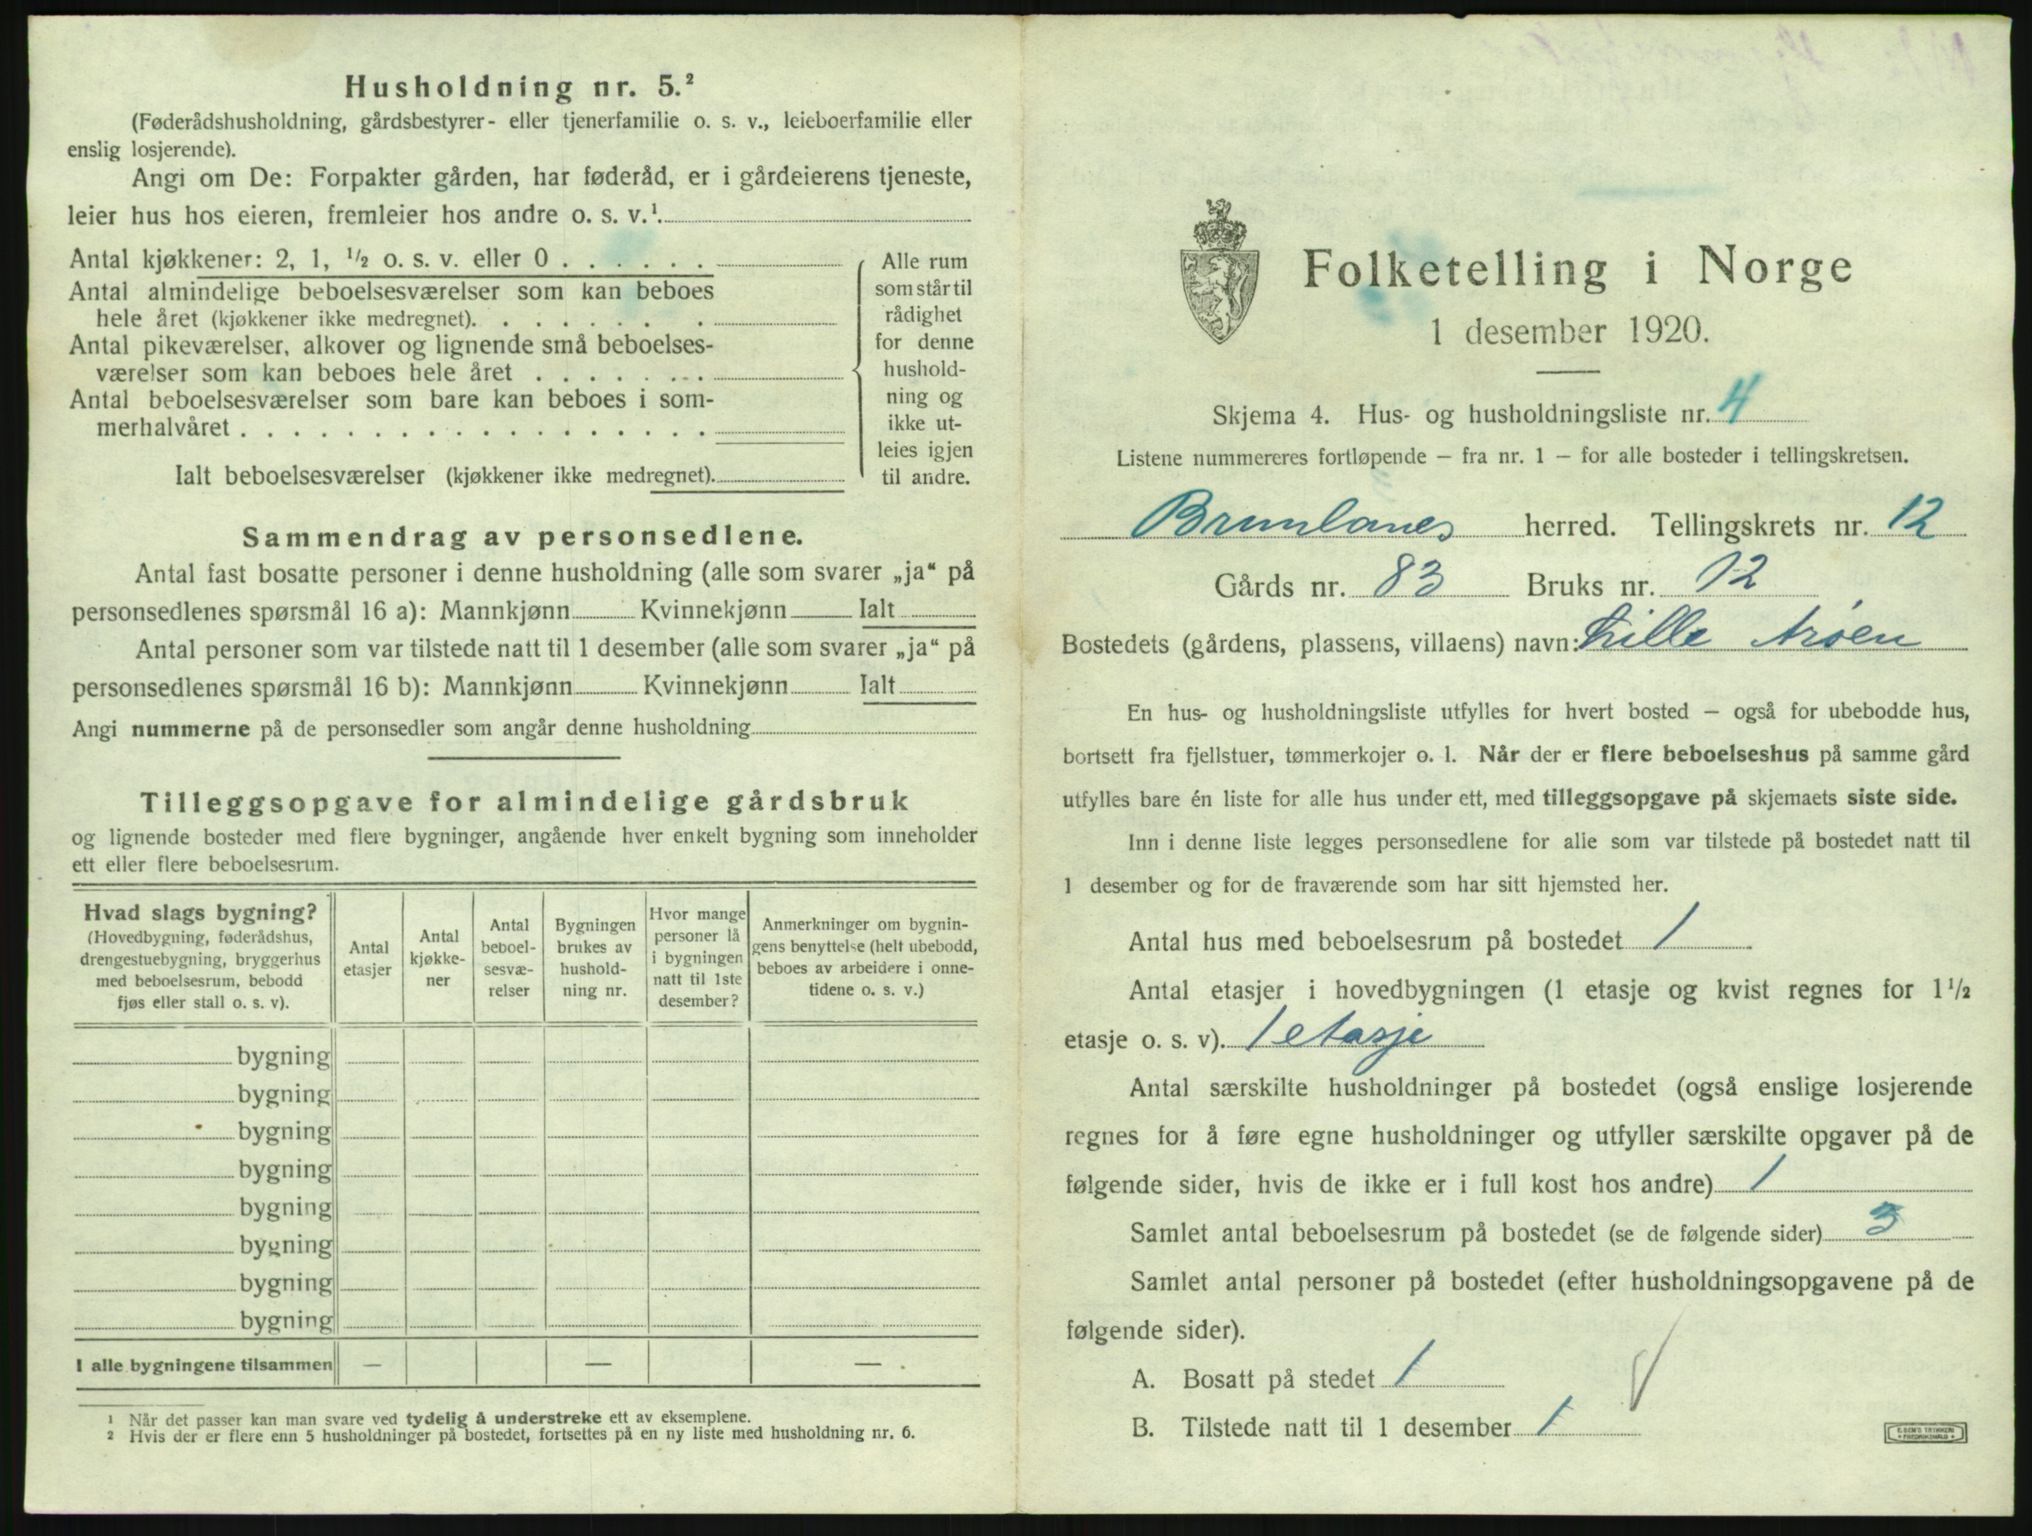 Husholdning nr. 5.²
(Føderådshusholdning, gårdsbestyrer- eller tjenerfamilie o. s. v., leieboerfamilie eller
enslig losjerende).
Angi om De: Forpakter gården, har føderåd, er i gårdeierens tjeneste,
leier hus hos eieren, fremleier hos andre o. s. v.¹
Antal kjøkkener: 2, 1, ½ o. s. v. eller 0
Antal almindelige beboelsesværelser som kan beboes
hele året (kjøkkener ikke medregnet).
Antal pikeværelser, alkover og lignende små beboelses-
værelser som kan beboes hele året
Antal beboelsesværelser som bare kan beboes i som-
merhalvåret
Ialt beboelsesværelser (kjøkkener ikke medregnet).
Alle rum
som står til
rådighet
for denne
hushold-
ning og
ikke ut-
leies igjen
til andre.
Sammendrag av personsedlene.
Antal fast bosatte personer i denne husholdning (alle som svarer „ja“ på
personsedlenes spørsmål 16 a): Mannkjønn Kvinnekjønn Ialt
Antal personer som var tilstede natt til 1 desember (alle som svarer „ja“ på
personsedlenes spørsmål 16 b): Mannkjønn Kvinnekjønn Ialt
Angi nummerne på de personsedler som angår denne husholdning
Tilleggsopgave for almindelige gårdsbruk
og lignende bosteder med flere bygninger, angående hver enkelt bygning som inneholder
ett eller flere beboelsesrum.
Hvad slags bygning?
(Hovedbygning, føderådshus,
drengestuebygning, bryggerhus
med beboelsesrum, bebodd
fjøs eller stall o. s. v).
Antal
etasjer
Antal
kjøkke-
ner
Antal
beboel-
sesvæ-
relser
Bygningen
brukes av
hushold-
ning nr.
Hvor mange
personer lå
i bygningen
natt til 1ste
desember?
Anmerkninger om bygnin-
gens benyttelse (helt ubebodd,
beboes av arbeidere i onne-
tidene o. s. v.)
bygning
bygning
bygning
bygning
bygning
bygning
bygning
bygning
I alle bygningene tilsammen — — —
¹ Når det passer kan man svare ved tydelig å understreke ett av eksemplene.
² Hvis der er flere enn 5 husholdninger på bostedet, fortsettes på en ny liste med husholdning nr. 6.
Folketelling i Norge
1 desember 1920.
Skjema 4. Hus- og husholdningsliste nr. 4
Listene nummereres fortløpende — fra nr. 1 — for alle bosteder i tellingskretsen.
Brunlanes herred. Tellingskrets nr. 12
Gårds nr. 83 Bruks nr. 12
Bostedets (gårdens, plassens, villaens) navn: Lille Arøen
En hus- og husholdningsliste utfylles for hvert bosted — også for ubebodde hus,
bortsett fra fjellstuer, tømmerkojer o. l. Når der er flere beboelseshus på samme gård
utfylles bare én liste for alle hus under ett, med tilleggsopgave på skjemaets siste side.
Inn i denne liste legges personsedlene for alle som var tilstede på bostedet natt til
1 desember og for de fraværende som har sitt hjemsted her.
Antal hus med beboelsesrum på bostedet 1
Antal etasjer i hovedbygningen (1 etasje og kvist regnes for 1½
etasje o. s. v). 1 etasje
Antal særskilte husholdninger på bostedet (også enslige losjerende
regnes for å føre egne husholdninger og utfyller særskilte opgaver på de
følgende sider, hvis de ikke er i full kost hos andre) 1
Samlet antal beboelsesrum på bostedet (se de følgende sider) 3
Samlet antal personer på bostedet (efter husholdningsopgavene på de
følgende sider).
A. Bosatt på stedet 1
B. Tilstede natt til 1 desember 1